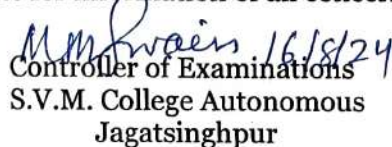 Swain 16/8/24
Controller of Examinations
S.V.M. College Autonomous
Jagatsinghpur